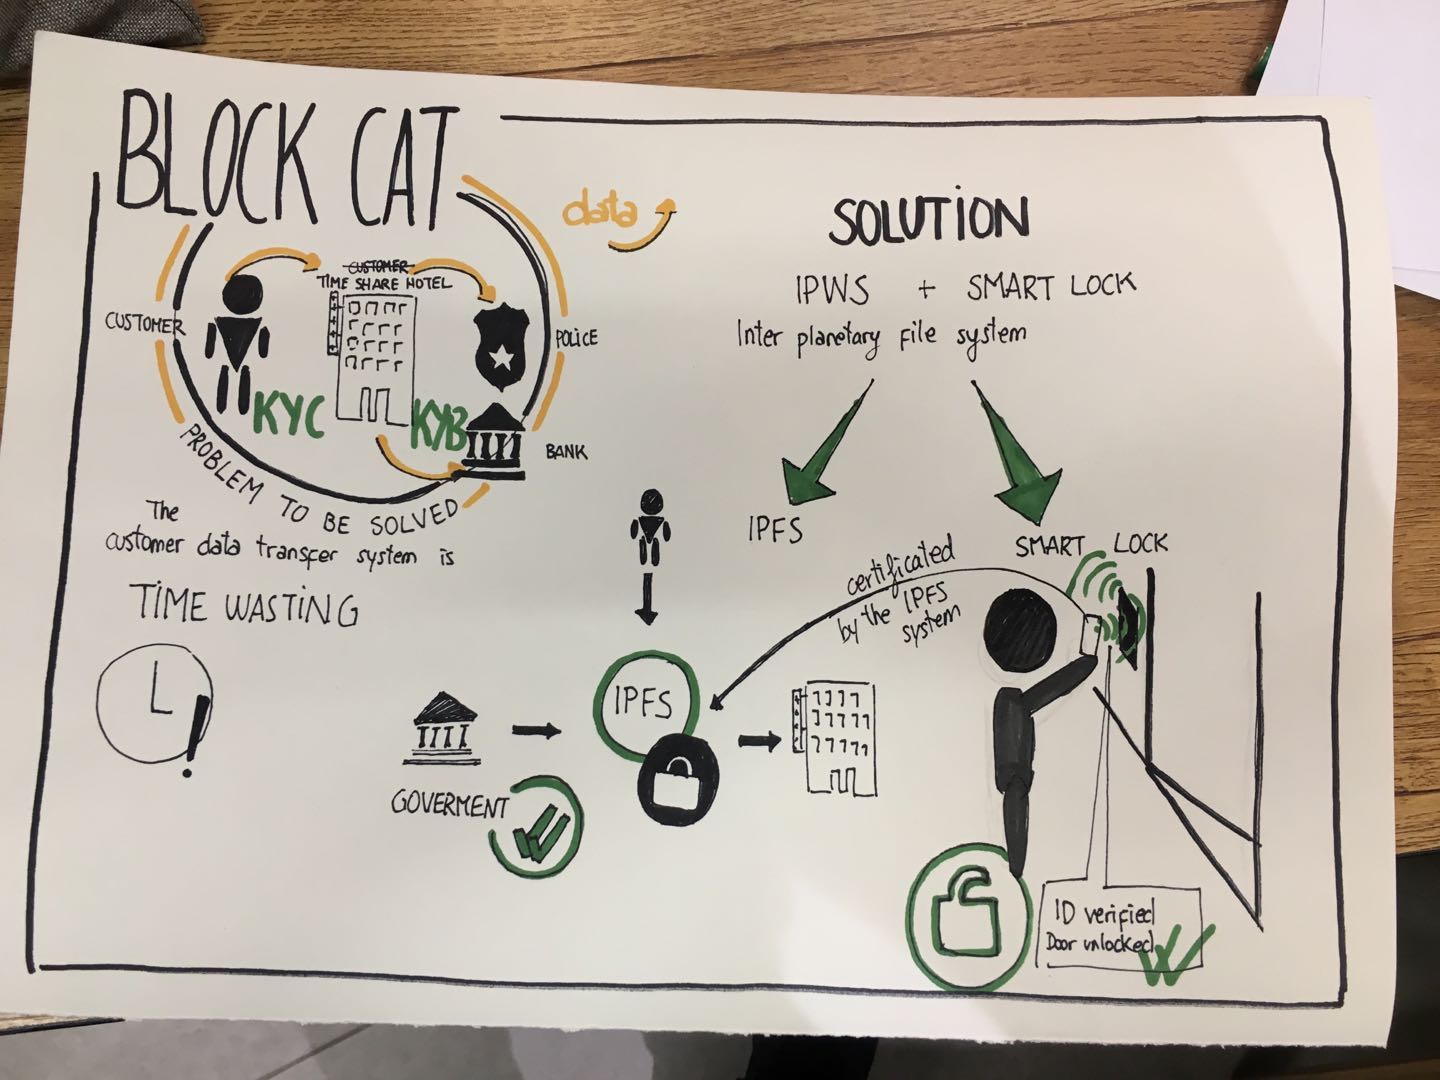 BLOCK CAT
data
CUSTOMER
TIME SHARE HOTEL
CUSTOMER
POLICE
KYC
KYB
BANK
PROBLEM TO BE SOLVED
The
customer data transfer system is
TIME WASTING
SOLUTION
IPWS + SMART LOCK
Inter planetary file system
IPFS
SMART LOCK
certificated
by the IPFS
system
IPFS
GOVERMENT
ID verified
Door unlocked